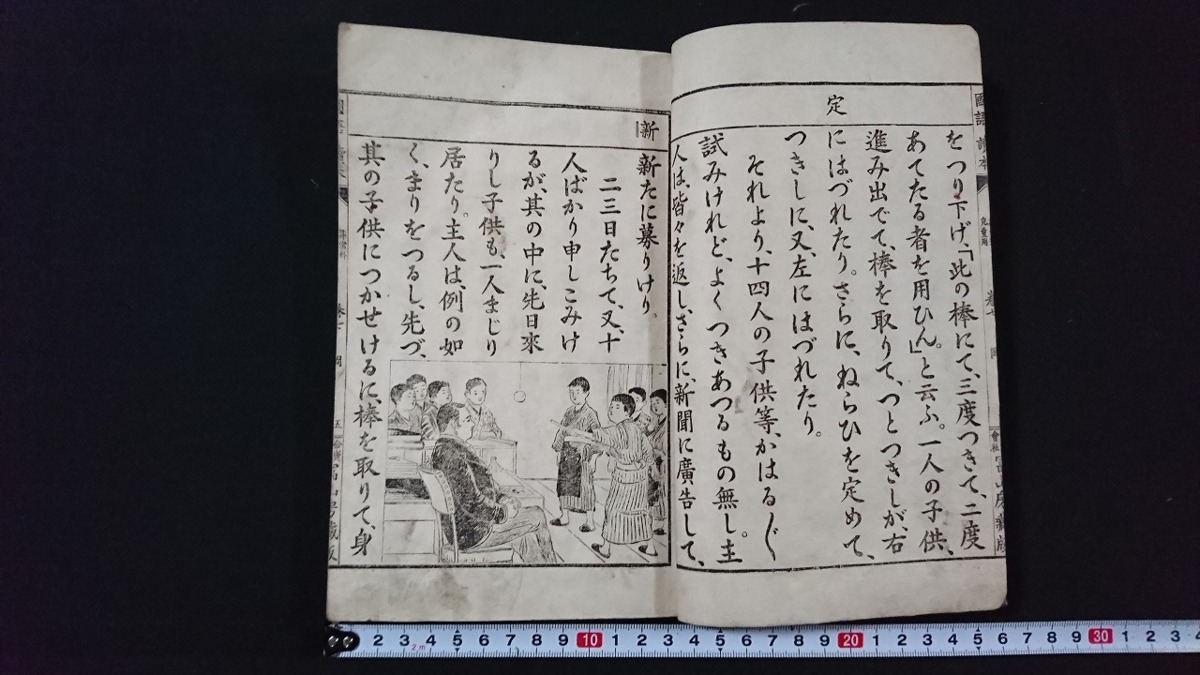 國語讀本
定
をつり下げ、「此の棒にて、三度つきて、二度
あてたる者を用ひん。」と云ふ。一人の子供、
進み出でて、棒を取りて、つとつきしが、右
にはづれたり。さらに、ねらひを定めて、
つきしに、又、左にはづれたり。
それより、十四人の子供等、かはる〴〵
試みけれど、よくつきあつるもの無し。主
人は、皆々を返し、さらに、新聞に廣告して、
新
新たに募りけり。
二三日たちて、又、十
人ばかり申しこみけ
るが、其の中に、先日來
りし子供も、一人まじり
居たり。主人は、例の如
く、まりをつるし、先づ、
其の子供につかせけるに、棒を取りて、身
2 3 4 5 6 7 8 9 10 1 2 3 4 5 6 7 8 9 20 1 2 3 4 5 6 7 8 9 30 1 2 3 4
2m